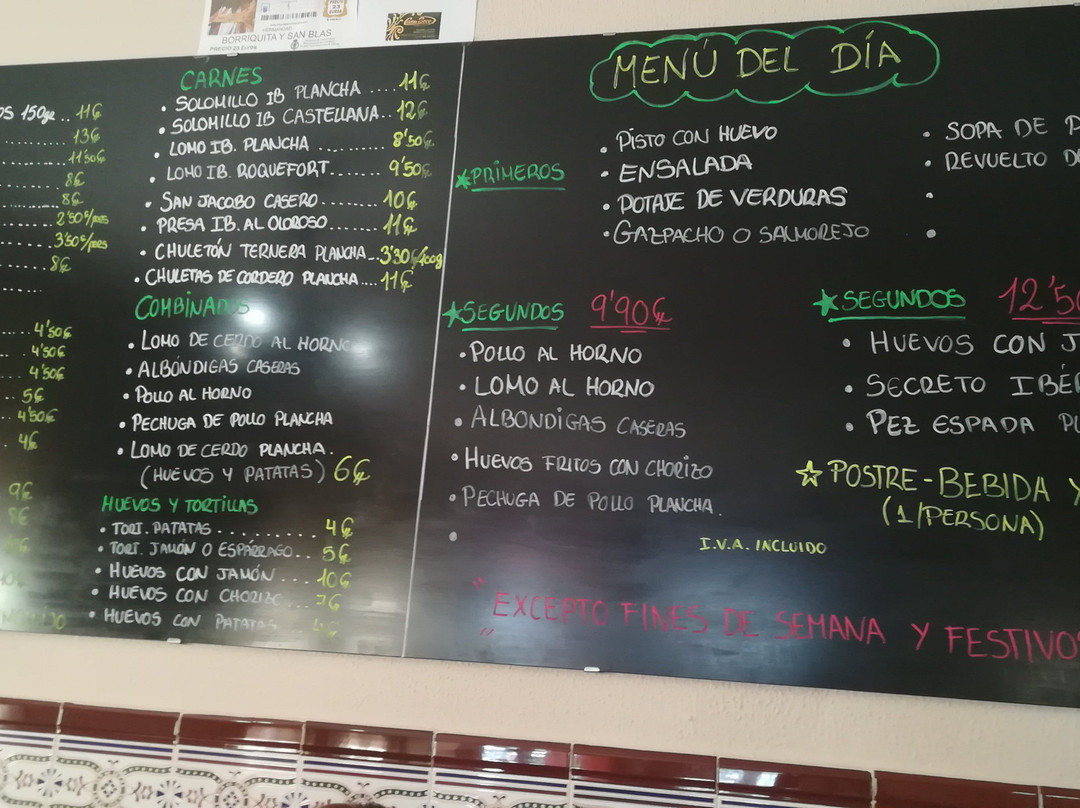 BORRIQUITA Y SAN BLAS
PRECIO 23 Euros
150gr .. 11€
13€
11'50€
8€
8€
2'50€/pers
3'50€/pers
8€
4'50€
4'50€
4'50€
5€
4'50€
4€
9€
8€
CARNES
• SOLOMILLO IB PLANCHA .... 11€
• SOLOMILLO IB CASTELLANA.. 12€
• LOMO IB. PLANCHA ......... 8'50€
• LOMO IB. ROQUEFORT....... 9'50€
• SAN JACOBO CASERO........ 10€
• PRESA IB. AL OLOROSO....... 11€
• CHULETÓN TERNERA PLANCHA...3'30€/100g
• CHULETAS DE CORDERO PLANCHA.... 11€
COMBINADOS
• LOMO DE CERDO AL HORNO
• ALBÓNDIGAS CASERAS
• POLLO AL HORNO
• PECHUGA DE POLLO PLANCHA
• LOMO DE CERDO PLANCHA.
(HUEVOS Y PATATAS) 6€
HUEVOS Y TORTILLAS
• TORT. PATATAS ............ 4€
• TORT. JAMÓN O ESPÁRRAGO... 5€
• HUEVOS CON JAMÓN .... 10€
• HUEVOS CON CHORIZO ... 7€
• HUEVOS CON PATATAS
MENÚ DEL DÍA
★PRIMEROS
• PISTO CON HUEVO
• ENSALADA
• POTAJE DE VERDURAS
• GAZPACHO O SALMOREJO
• SOPA DE
• REVUELTO
★SEGUNDOS 9'90€
• POLLO AL HORNO
• LOMO AL HORNO
• ALBONDIGAS CASERAS
• HUEVOS FRITOS CON CHORIZO
• PECHUGA DE POLLO PLANCHA.
★SEGUNDOS 12'50
• HUEVOS CON
• SECRETO IBÉR
• PEZ ESPADA PL
☆ POSTRE-BEBIDA Y
(1/PERSONA)
I.V.A. INCLUIDO
"EXCEPTO FINES DE SEMANA Y FESTIVOS